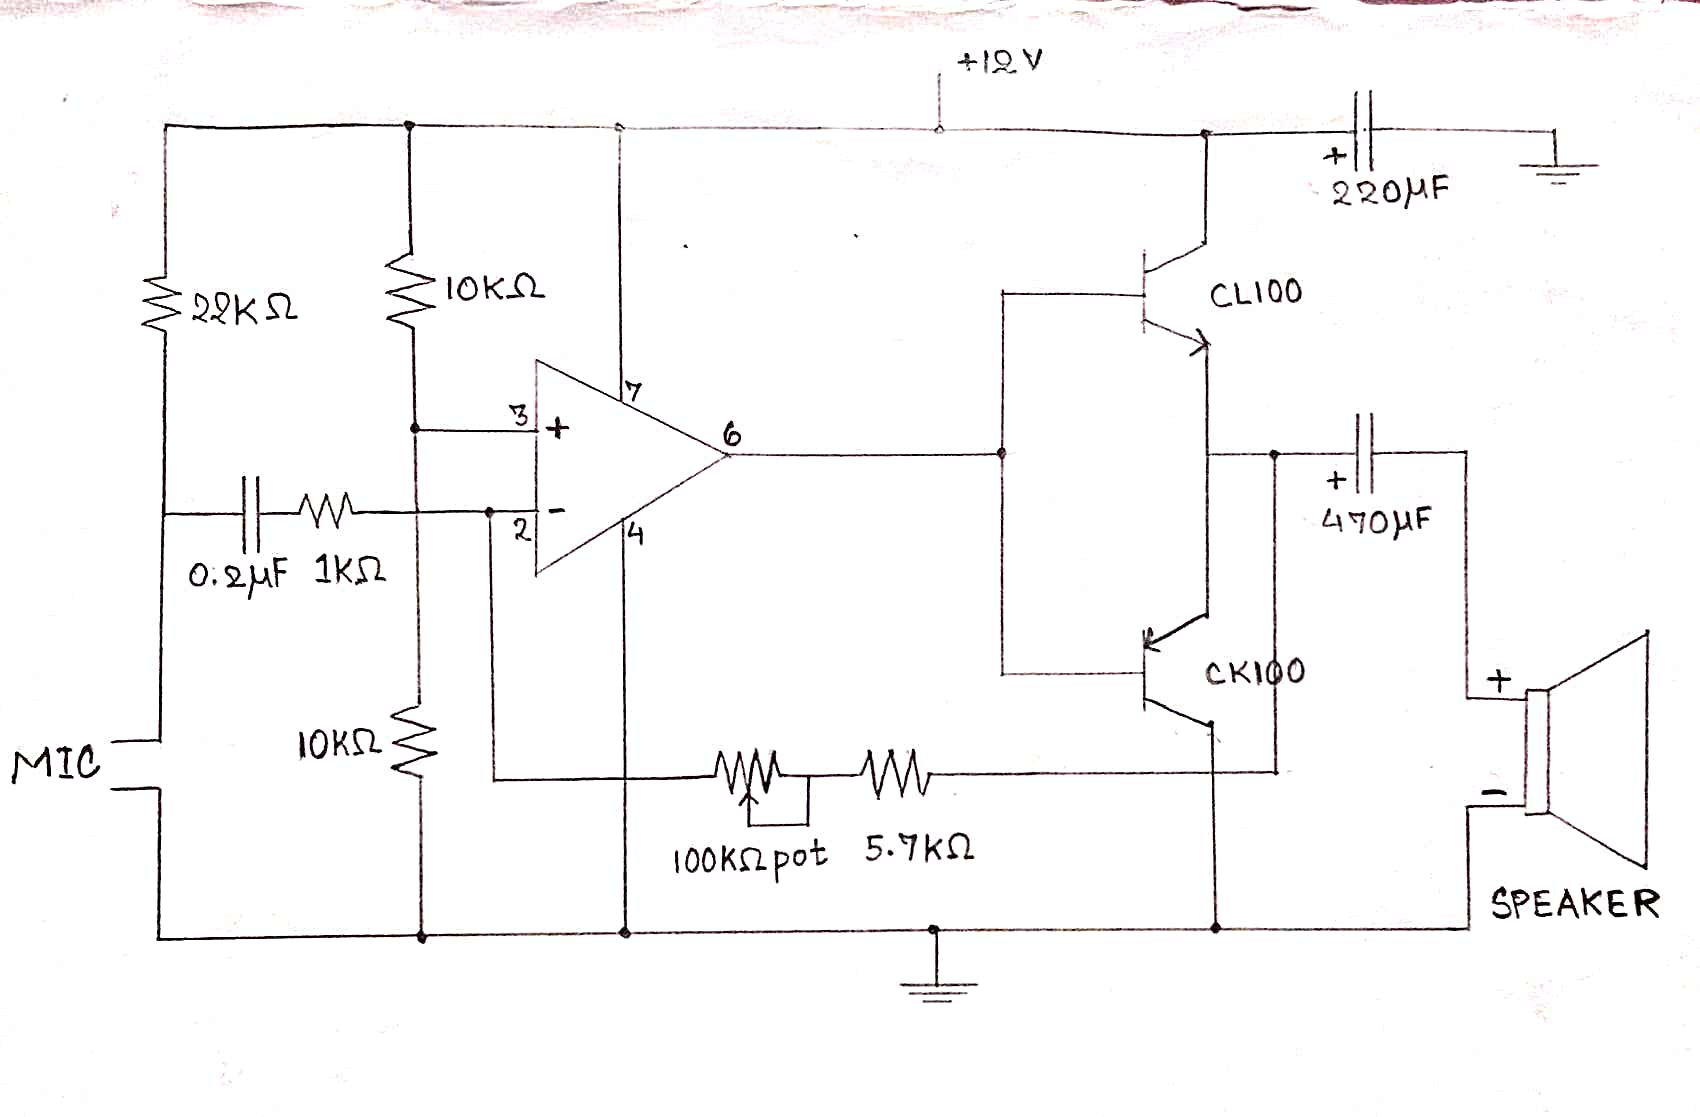 +12V
+
220μF
22KΩ
10KΩ
CL100
7
3
+
6
2
-
4
0.2μF
1KΩ
+
470μF
CK100
+
-
MIC
10KΩ
100KΩ pot
5.7KΩ
SPEAKER